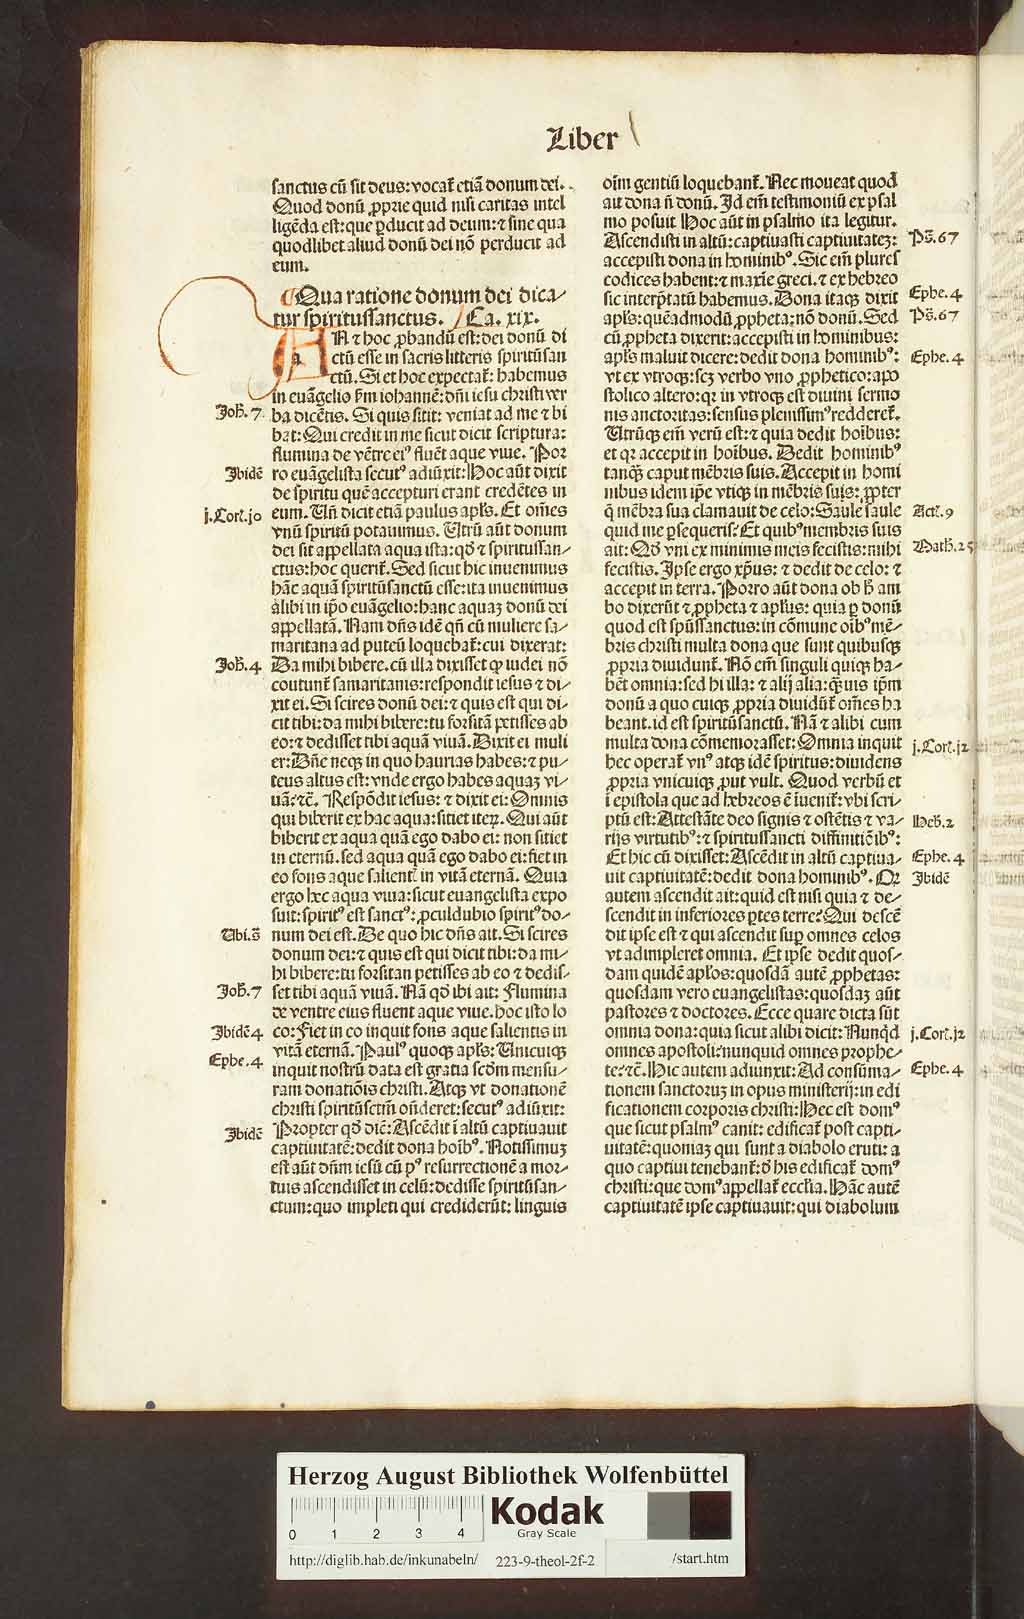 Liber
sanctus cū sit deus: vocat̄ etiā donum dei.
Quod donū ꝓprie quid nisi caritas intel
ligēda est: que ꝑducit ad deum: ⁊ sine qua
quodlibet aliud donū dei nō perducit ad
eum.
¶ Qua ratione donum dei dica/
tur spiritussanctus. Ca. xix.
AN ⁊ hoc ꝓbandū est: dei donū di
ctū esse in sacris litteris spiritūsan
ctū. Si et hoc expectat̄: habemus
Joh̄. 7.
in euāgelio ẜm iohannē: dn̄i iesu christi ver
ba dicētis. Si quis sitit: veniat ad me ⁊ bi
bat: Qui credit in me sicut dicit scriptura:
flumina de vētre eiꝰ fluēt aque viue. Por
Jbidē
ro euāgelista secutꝰ adiūxit: Hoc aūt dixit
de spiritu quē accepturi erant credētes in
j. Cort̄. jo
eum. Un̄ dicit etiā paulus apl̄s. Et om̄es
vnū spiritū potauimus. Utrū aūt donum
dei sit appellata aqua ista: qd̄ ⁊ spiritussan/
ctus: hoc querit̄. Sed sicut hic inuenimus
hāc aquā spiritūsanctū esse: ita inuenimus
alibi in ip̄o euāgelio: hanc aquaꝫ donū dei
appellatā. Nam dn̄s idē qn̄ cū muliere sa/
maritana ad puteū loquebat̄: cui dixerat:
Joh̄. 4
Da mihi bibere. cū illa dixisset ꝙ iudei nō
coutunt̄ samaritanis: respondit iesus ⁊ di/
xit ei. Si scires donū dei: ⁊ quis est qui di/
cit tibi: da mihi bibere: tu forsitā petisses ab
eo: ⁊ dedisset tibi aquā viuā. Dixit ei muli
er: Dn̄e neqꝫ in quo haurias habes: ⁊ pu/
teus altus est: vnde ergo habes aquaꝫ vi/
uā: ⁊c̄. Respōdit iesus: ⁊ dixit ei: Omnis
qui biberit ex hac aqua: sitiet iteꝝ. Qui aūt
biberit ex aqua quā ego dabo ei: non sitiet
in eternū. sed aqua quā ego dabo ei: fiet in
eo fons aque salient̄ in vitā eternā. Quia
ergo hec aqua viua: sicut euangelista expo
suit: spiritꝰ est sanctꝰ: ꝓculdubio spiritꝰ do/
Ubi. s̄
num dei est. De quo hic dn̄s ait. Si scires
donum dei: ⁊ quis est qui dicit tibi: da mi/
hi bibere: tu forsitan petisses ab eo ⁊ dedis/
Joh̄. 7
set tibi aquā viuā. Nā qd̄ ibi ait: Flumina
de ventre eius fluent aque viue. hoc isto lo
Jbidē 4
co: Fiet in eo inquit fons aque salientis in
vitā eternā. Paulꝰ quoqꝫ apl̄s: Unicuiqꝫ
Ephe. 4
inquit nostrū data est gratia scd̄m mensu/
ram donatiōis christi. Atqꝫ vt donationē
christi spiritūsctm̄ on̄deret: secutꝰ adiūxit:
Jbidē
Propter qd̄ dic̄: Ascēdit ī altū captiuauit
captiuitatē: dedit dona hoīb̄ꝰ. Notissimuꝫ
est aūt dn̄m iesū cū pꝰ resurrectionē a mor/
tuis ascendisset in celū: dedisse spiritūsan/
ctum: quo impleti qui crediderūt: linguis
oīm gentiū loquebant̄. Nec moueat quod
ait dona n̄ donū. Jd em̄ testimoniū ex psal
mo posuit Hoc aūt in psalmo ita legitur.
Ascendisti in altū: captiuasti captiuitateꝫ:
Ps̄. 67
accepisti dona in hominibꝰ. Sic em̄ plures
codices habent: ⁊ maxīe greci. ⁊ ex hebreo
sic interp̄tatū habemus. Dona itaqꝫ dixit
Ephe. 4
apl̄s: quēadmodū ꝓpheta: nō donū. Sed
Ps̄. 67
cū ꝓpheta dixerit: accepisti in hominibus:
apl̄s maluit dicere: dedit dona hominibꝰ:
Ephe. 4
vt ex vtroqꝫ: scꝫ verbo vno ꝓphetico: apo
stolico altero: qꝛ in vtroqꝫ est diuini sermo
nis auctoritas: sensus plenissimꝰ redderet̄.
Utrūqꝫ em̄ verū est: ⁊ quia dedit hoībus:
et qꝛ accepit in hoībus. Dedit hominibꝰ
tanqꝫ caput mēbris suis. Accepit in homi
nibus idem ip̄e vtiqꝫ in mēbris suis: ꝓpter
q̄ mēbra sua clamauit de celo: Saule saule
Act̄. 9
quid me ꝑsequeris? Et quibꝰ membris suis
ait: Qd̄ vni ex minimis meis fecistis: mihi
Math̄. 25
fecistis. Jpse ergo xp̄us: ⁊ dedit de celo: ⁊
accepit in terra. Porro aūt dona ob h̄ am
bo dixerūt ⁊ ꝓpheta ⁊ apl̄us: quia ꝑ donū
quod est spūssanctus: in cōmune oībꝰ mē/
bris christi multa dona que sunt quibusqꝫ
ꝓpria diuidunt̄. Nō em̄ singuli quiqꝫ ha/
bēt omnia: sed hi illa: ⁊ alij alia: q̄ꝫuis ip̄m
donū a quo cuiqꝫ ꝓpria diuidūt̄ om̄es ha
beant. id est spiritūsanctū. Nā ⁊ alibi cum
multa dona cōmemorasset: Omnia inquit
j. Cort̄. j2
hec operat̄ vnꝰ atqꝫ idē spiritus: diuidens
ꝓpria vnicuiqꝫ ꝓut vult. Quod verbū et
ī epistola que ad hebreos ē īuenit̄: vbi scri/
ptū est: Attestāte deo signis ⁊ ostētis ⁊ va/
Heb̄. 2
rijs virtutibꝰ: ⁊ spiritussancti diffinitiōibꝰ:
Et hic cū dixisset: Ascēdit in altū captiua/
Ephe. 4
uit captiuitatē: dedit dona hominibꝰ. Qꝛ
Jbidē
autem ascendit ait: quid est nisi quia ⁊ de/
scendit in inferiores ꝑtes terre? Qui descē
dit ipse est ⁊ qui ascendit suꝑ omnes celos
vt adimpleret omnia. Et ipse dedit quos/
dam quidē apl̄os: quosdā autē ꝓphetas:
quosdam vero euangelistas: quosdaꝫ aūt
pastores ⁊ doctores. Ecce quare dicta sūt
omnia dona: quia sicut alibi dicit: Nunqd̄
j. Cort̄. j2
omnes apostoli: nunquid omnes prophe/
te: ⁊c̄. Hic autem adiunxit: Ad consūma/
Ephe. 4
tionem sanctoruꝫ in opus ministerij: in edi
ficationem corporis christi: Hec est domꝰ
que sicut psalmꝰ canit: edificat̄ post capti/
uitatē: quoniaꝫ qui sunt a diabolo eruti: a
quo captiui tenebant̄: d̄ his edificat̄ domꝰ
christi: que domꝰ appellat̄ eccl̄ia. Hāc autē
captiuitatē ipse captiuauit: qui diabolum
Herzog August Bibliothek Wolfenbüttel
Kodak
Gray Scale
0 1 2 3 4
http://diglib.hab.de/inkunabeln/ 223-9-theol-2f-2 /start.htm